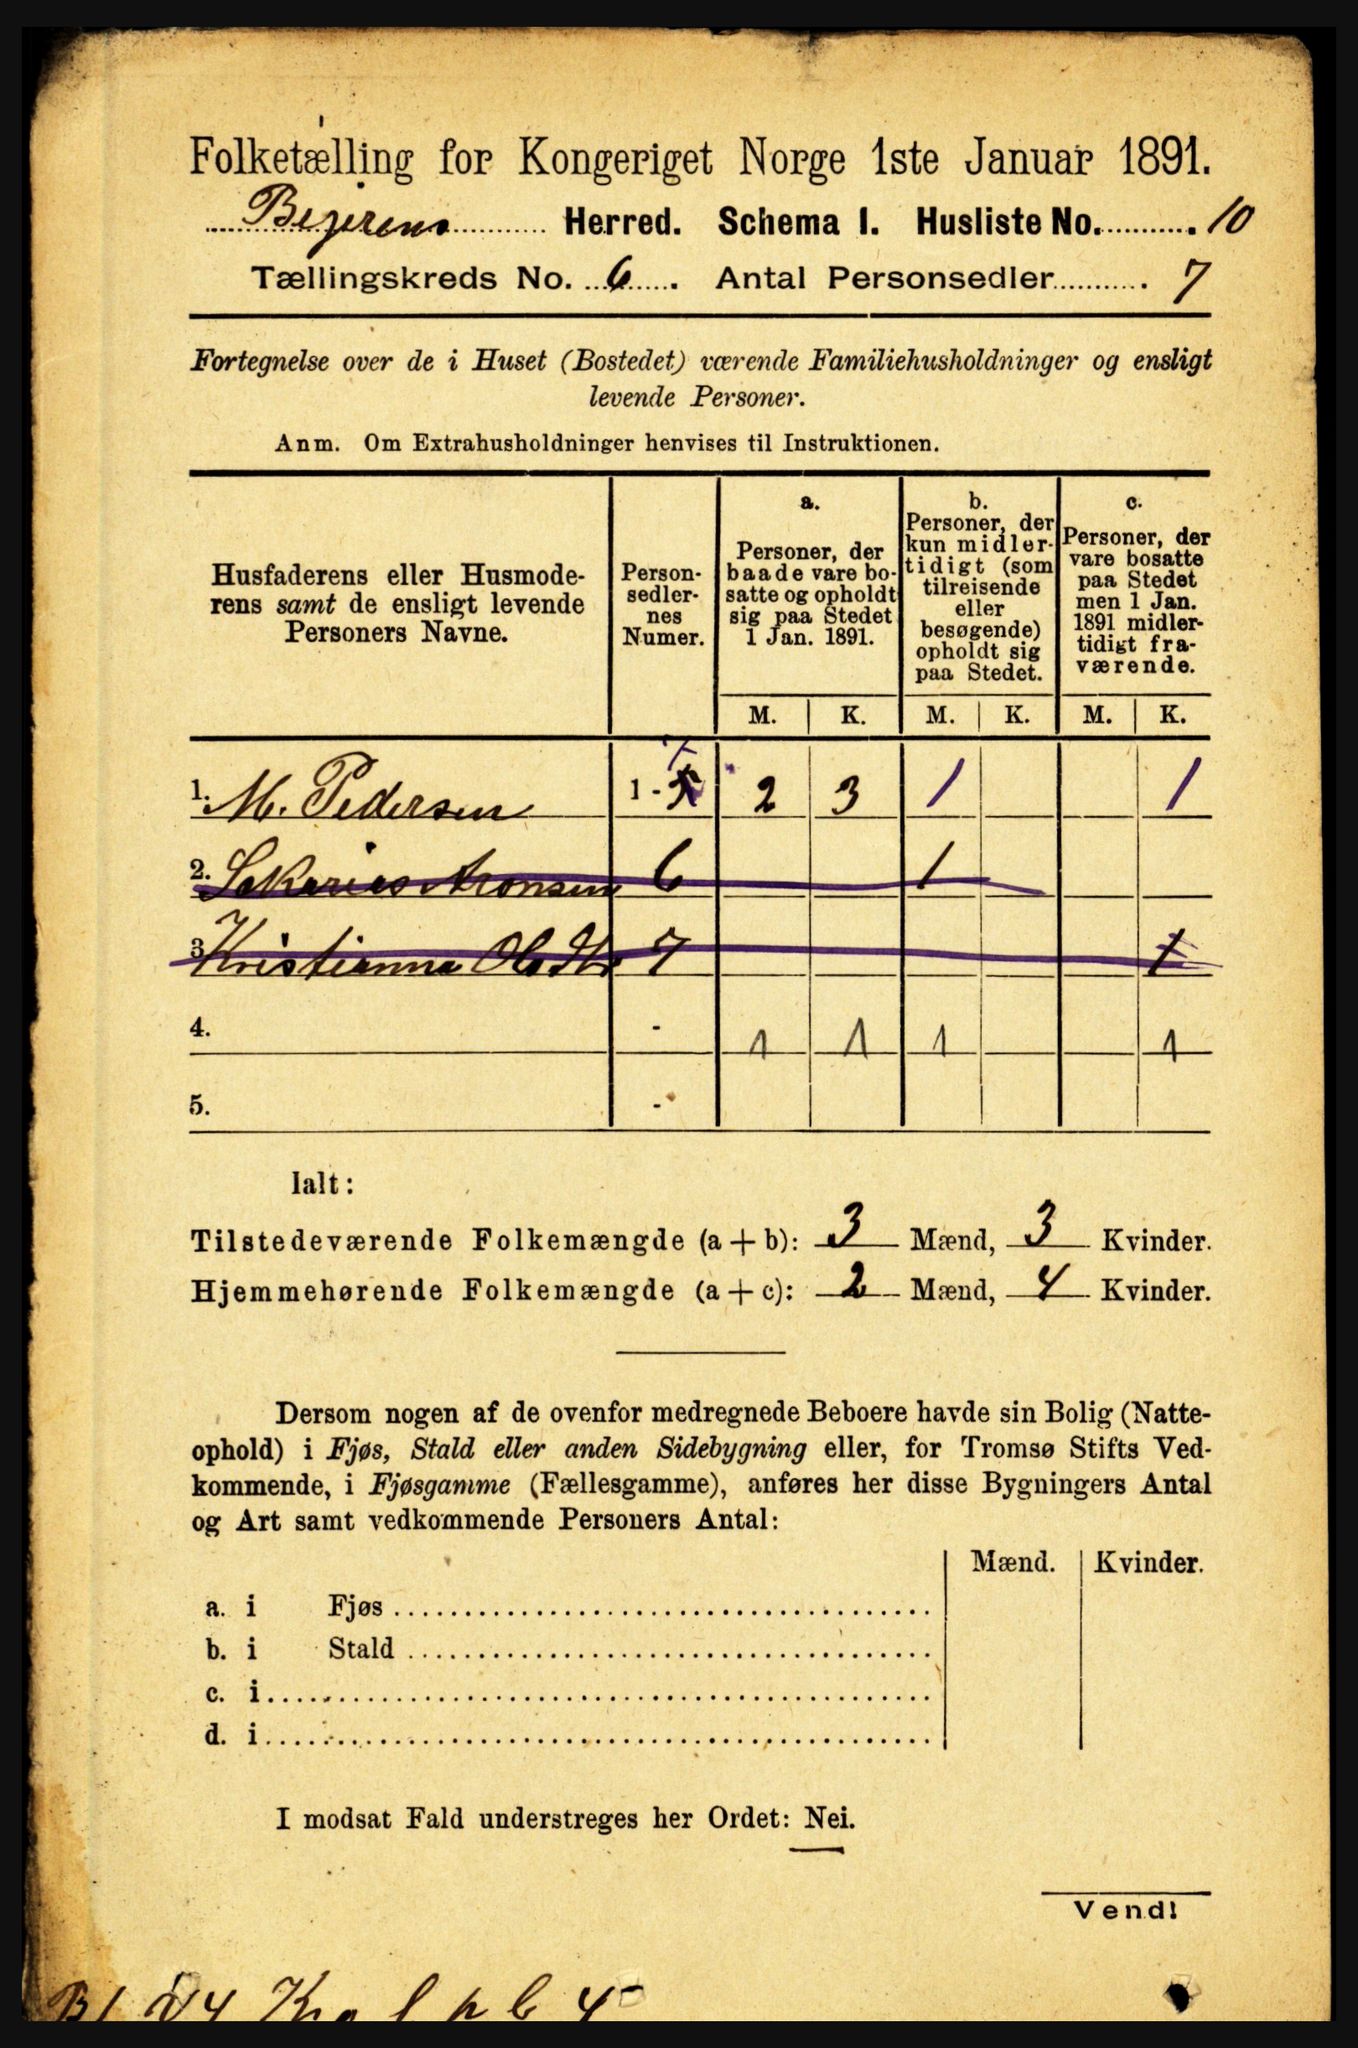 Folketælling for Kongeriget Norge 1ste Januar 1891.
Bejerens Herred. Schema I. Husliste No. 10
Tællingskreds No. 6. Antal Personsedler 7
Fortegnelse over de i Huset (Bostedet) værende Familiehusholdninger og ensligt
levende Personer.
Anm. Om Extrahusholdninger henvises til Instruktionen.
Husfaderens eller Husmode-
rens samt de ensligt levende
Personers Navne.
Person-
sedler-
nes
Numer.
a.
Personer, der
baade vare bo-
satte og opholdt
sig paa Stedet
1 Jan. 1891.
b.
Personer, der
kun midler-
tidigt (som
tilreisende
eller
besøgende)
opholdt sig
paa Stedet.
c.
Personer, der
vare bosatte
paa Stedet
men 1 Jan.
1891 midler-
tidigt fra-
værende.
M. K. M. K. M. K.
1. M. Pedersen 1 - 5 7 2 3 1 1
2. Sakarias Aronsen 6 1
3. Kristianna Olsdtr 7 1
4. - 1 1 1 1
5. -
Ialt:
Tilstedeværende Folkemængde (a + b): 3 Mænd, 3 Kvinder.
Hjemmehørende Folkemængde (a + c): 2 Mænd, 4 Kvinder.
Dersom nogen af de ovenfor medregnede Beboere havde sin Bolig (Natte-
ophold) i Fjøs, Stald eller anden Sidebygning eller, for Tromsø Stifts Ved-
kommende, i Fjøsgamme (Fællesgamme), anføres her disse Bygningers Antal
og Art samt vedkommende Personers Antal:
Mænd. Kvinder.
a. i Fjøs
b. i Stald
c. i
d. i
I modsat Fald understreges her Ordet: Nei.
Vend!